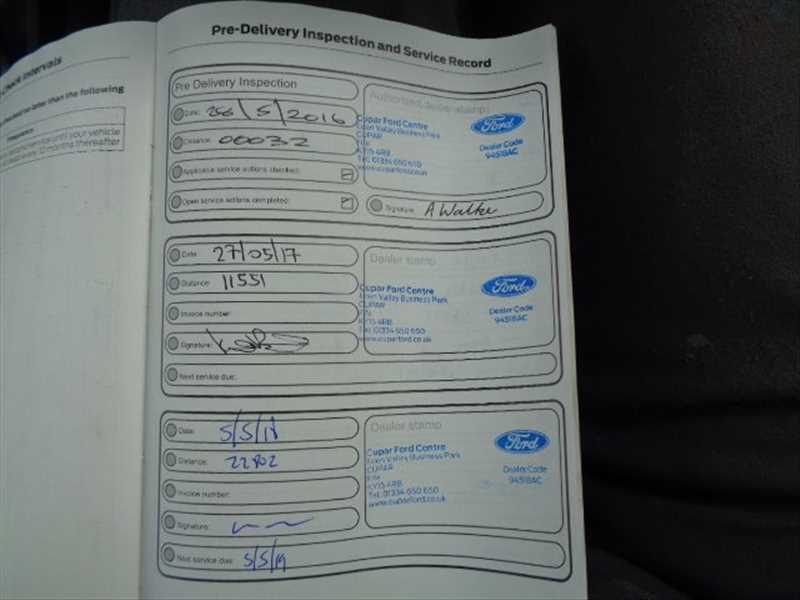 Check Intervals
no later than the following
service until your vehicle
every 12 months thereafter
Pre-Delivery Inspection and Service Record
Pre Delivery Inspection
Date: /5/2016
Distance: 00032
Applicable service actions checked:
Open service actions completed:
Authorised dealer stamp:
Cupar Ford Centre
Eden Valley Business Park
CUPAR
Fife
KY15 4RB
Tel: 01334 650 650
www.cuparford.co.uk
Ford
Dealer Code
94518AC
Signature: A Walker
Date: 27/05/17
Distance: 11551
Invoice number:
Signature:
Next service due:
Dealer stamp
Cupar Ford Centre
Eden Valley Business Park
CUPAR
Fife
KY15 4RB
Tel: 01334 650 650
www.cuparford.co.uk
Ford
Dealer Code
94518AC
Date: 5/5/18
Distance: 22802
Invoice number:
Signature:
Next service due: 5/5/19
Dealer stamp
Cupar Ford Centre
Eden Valley Business Park
CUPAR
Fife
KY15 4RB
Tel: 01334 650 650
www.cuparford.co.uk
Ford
Dealer Code
94518AC